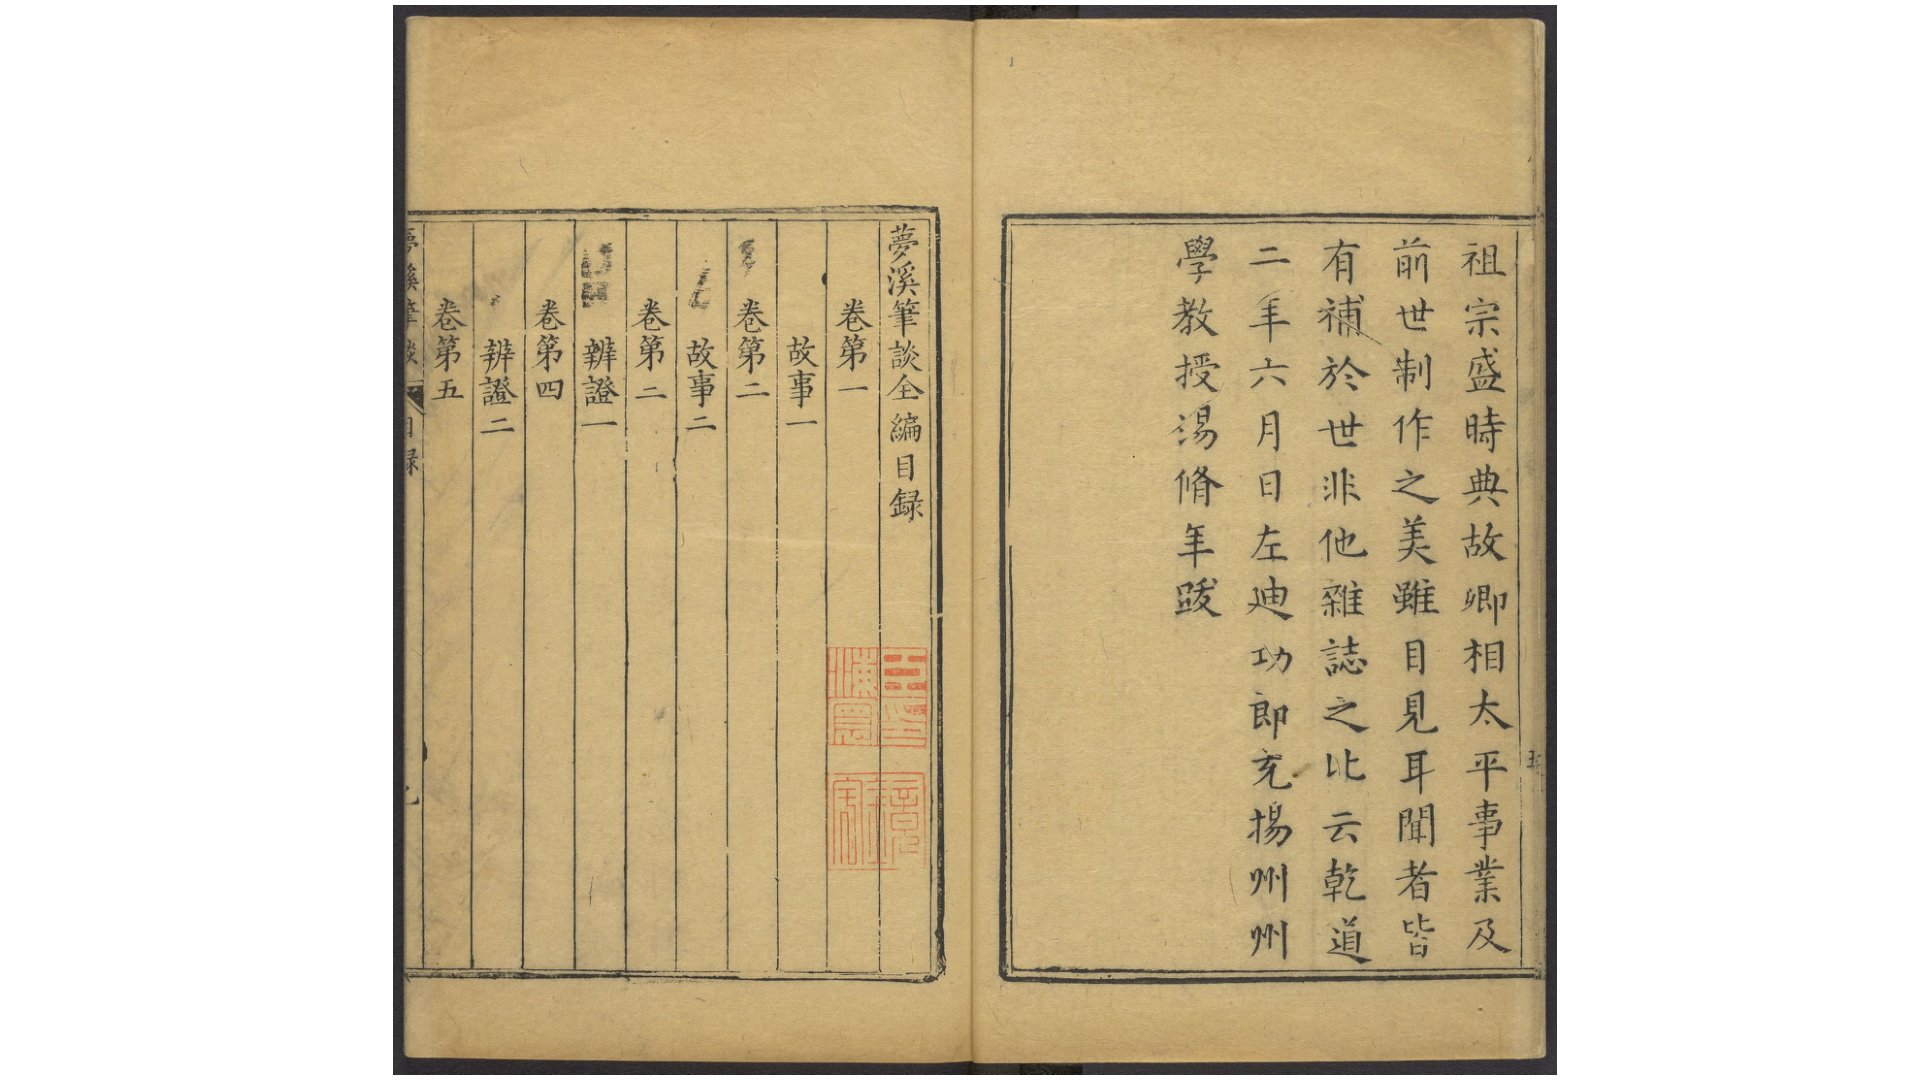 祖宗盛時典故卿相太平事業及
前世制作之美雖目見耳聞者皆
有補於世非他雜誌之比云乾道
二年六月日左迪功郎充揚州州
學教授湯脩年跋
夢溪筆談全編目録
卷第一
故事一
卷第二
故事二
卷第二
辨證一
卷第四
辨證二
卷第五
夢溪筆談 目録